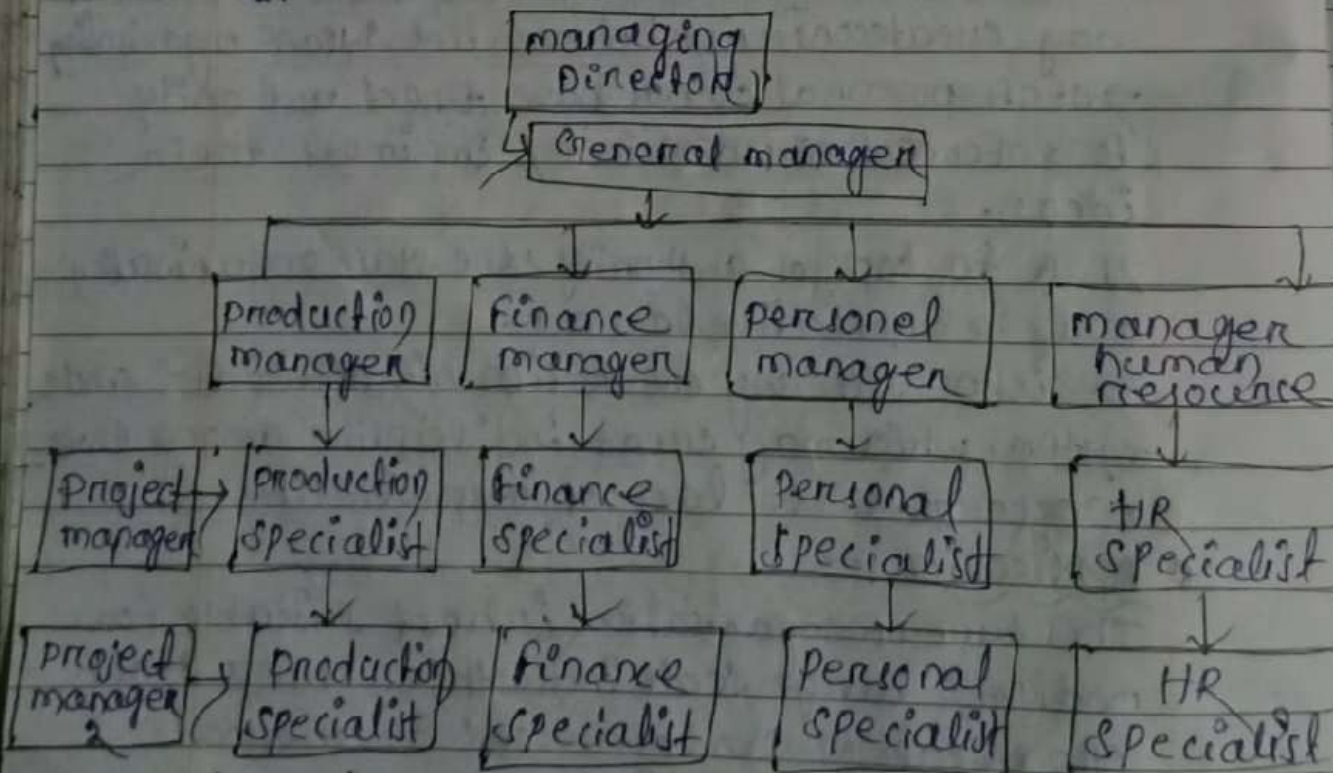 managing
Director
General manager
production
manager
finance
manager
personel
manager
manager
human
resource
project
manager
production
specialist
finance
specialist
personal
specialist
HR
specialist
project
manager
2
production
specialist
finance
specialist
personal
specialist
HR
specialist